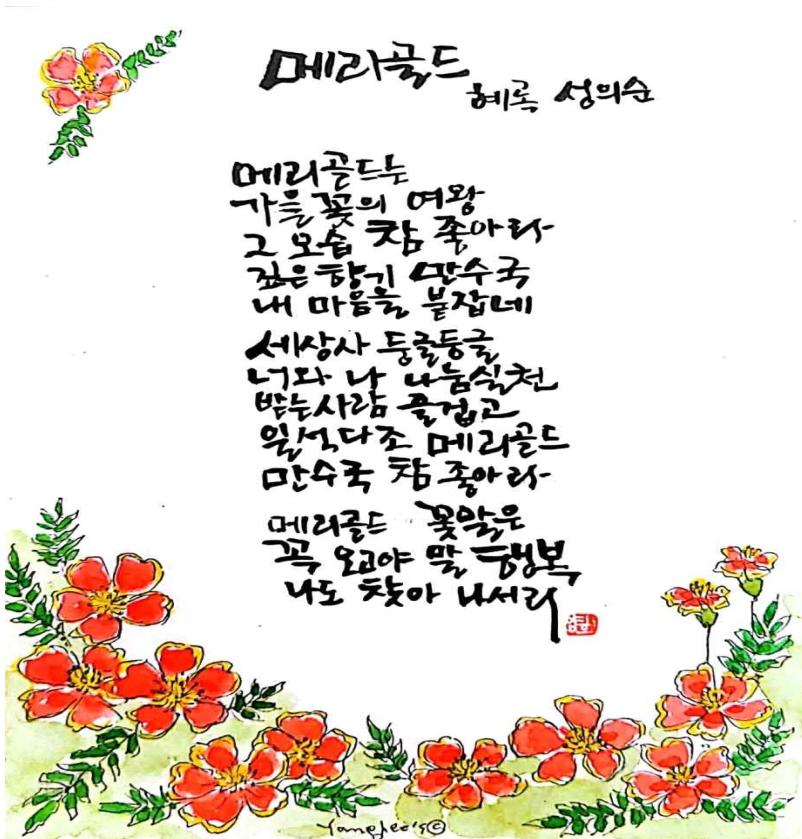 메리골드
혜록 성의순
메리골드는
가을 꽃의 여왕
그 모습 참 좋아라
짙은 향기 만수국
내 마음을 붙잡네
세상사 둥글둥글
너와 나 나눔실천
받는사람 즐겁고
일석다조 메리골드
만수국 참 좋아라
메리골드 꽃말은
꼭 오고야 말 행복
나도 찾아 나서리